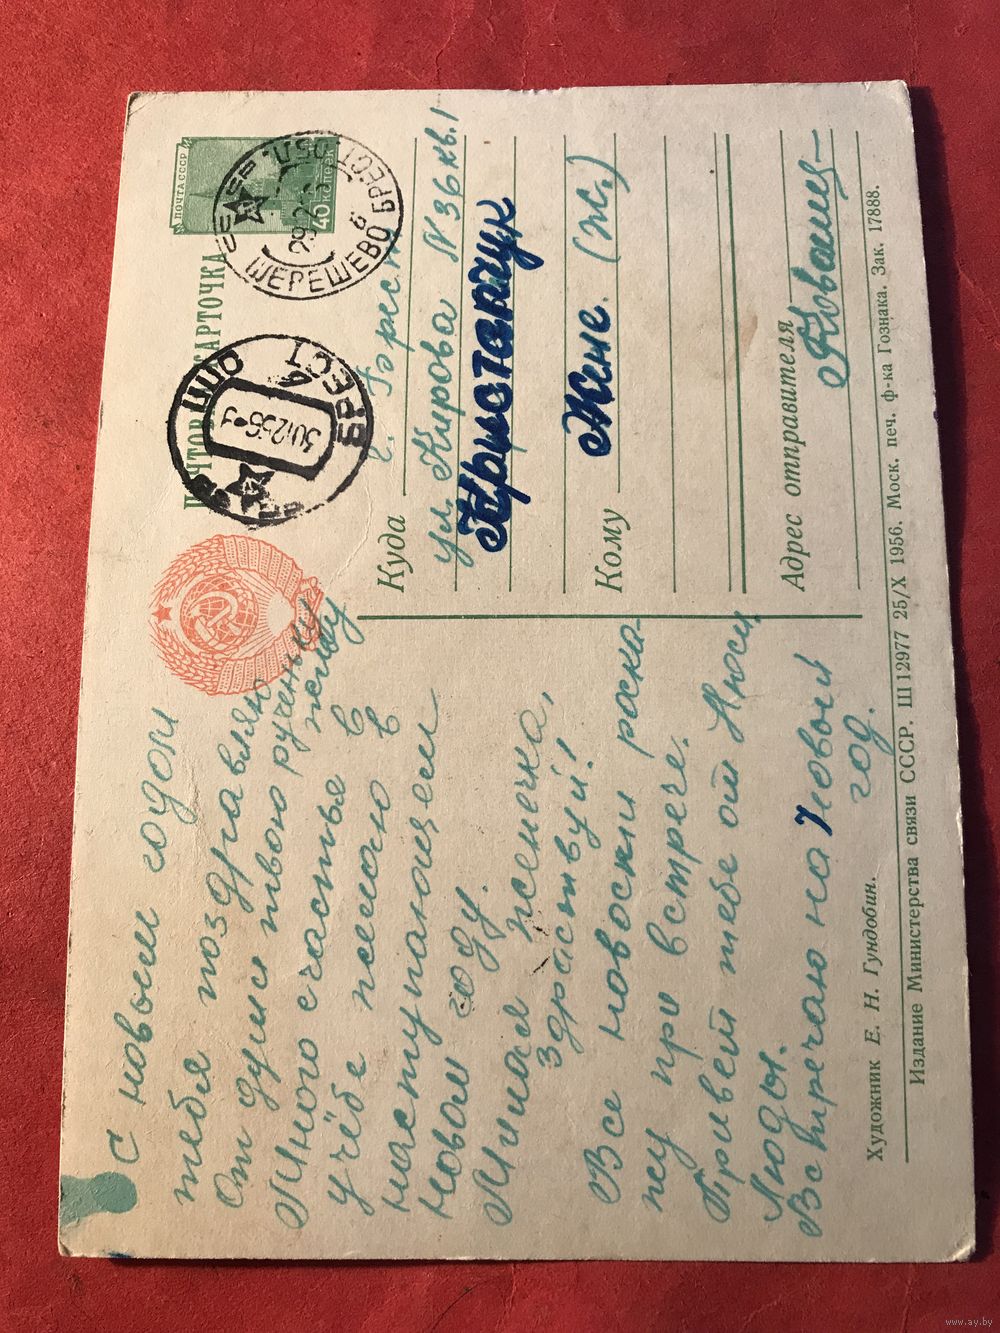 С новым годом
тебя поздравляю
От души твою рученьку жму
Много счастья в
учёбе желаю в
наступающем
Новом году.
Милая Женечка,
здраствуй!
Все новоски раска-
жу при встрече.
Привет тебе от Люси,
Люды.
Встречаю на Новый
год.
ПОЧТОВАЯ КАРТОЧКА
ПОЧТА СССР
40 КОПЕЕК
ШЕРЕШЕВО БРЕСТ. ОБЛ.
29 12
БРЕСТ
30 12 56
Куда г. Брест
ул. Кирова N 36 кв. 1
Приставчук
Кому Жене (Ж.)
Адрес отправителя
Художник Е. Н. Гундобин.
Издание Министерства связи СССР. Ш 12977 25/X 1956. Моск. печ. ф-ка Гознака. Зак. 17888.
www.ay.by